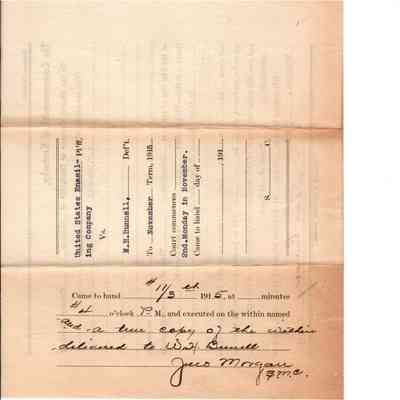 United States Enamil- Pl'ff,
ing Company
Vs.
W.H.Bunnell, Def't.
To November Term, 1915
Court commences
2nd.Monday in November.
Came to hand day of
, 191
S. C.
Came to hand 11/3 th 1915, at minutes
4 o'clock P. M., and executed on the within named
and a true copy of the within
delivered to W.H. Bunnell
Jno Morgan